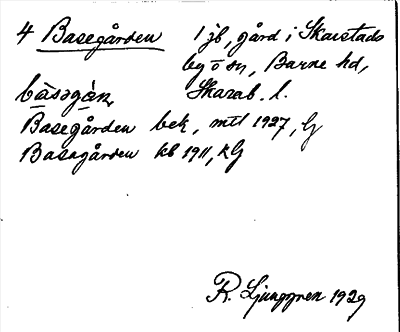 4 Basegården 1 jb, gård i Skarstads
by o sn, Barne hd,
bàsəgà̱n, Skarab. l.
Basegården bek, mtl 1927, G
Basagården kb 1911, RG
R. Ljunggren 1929